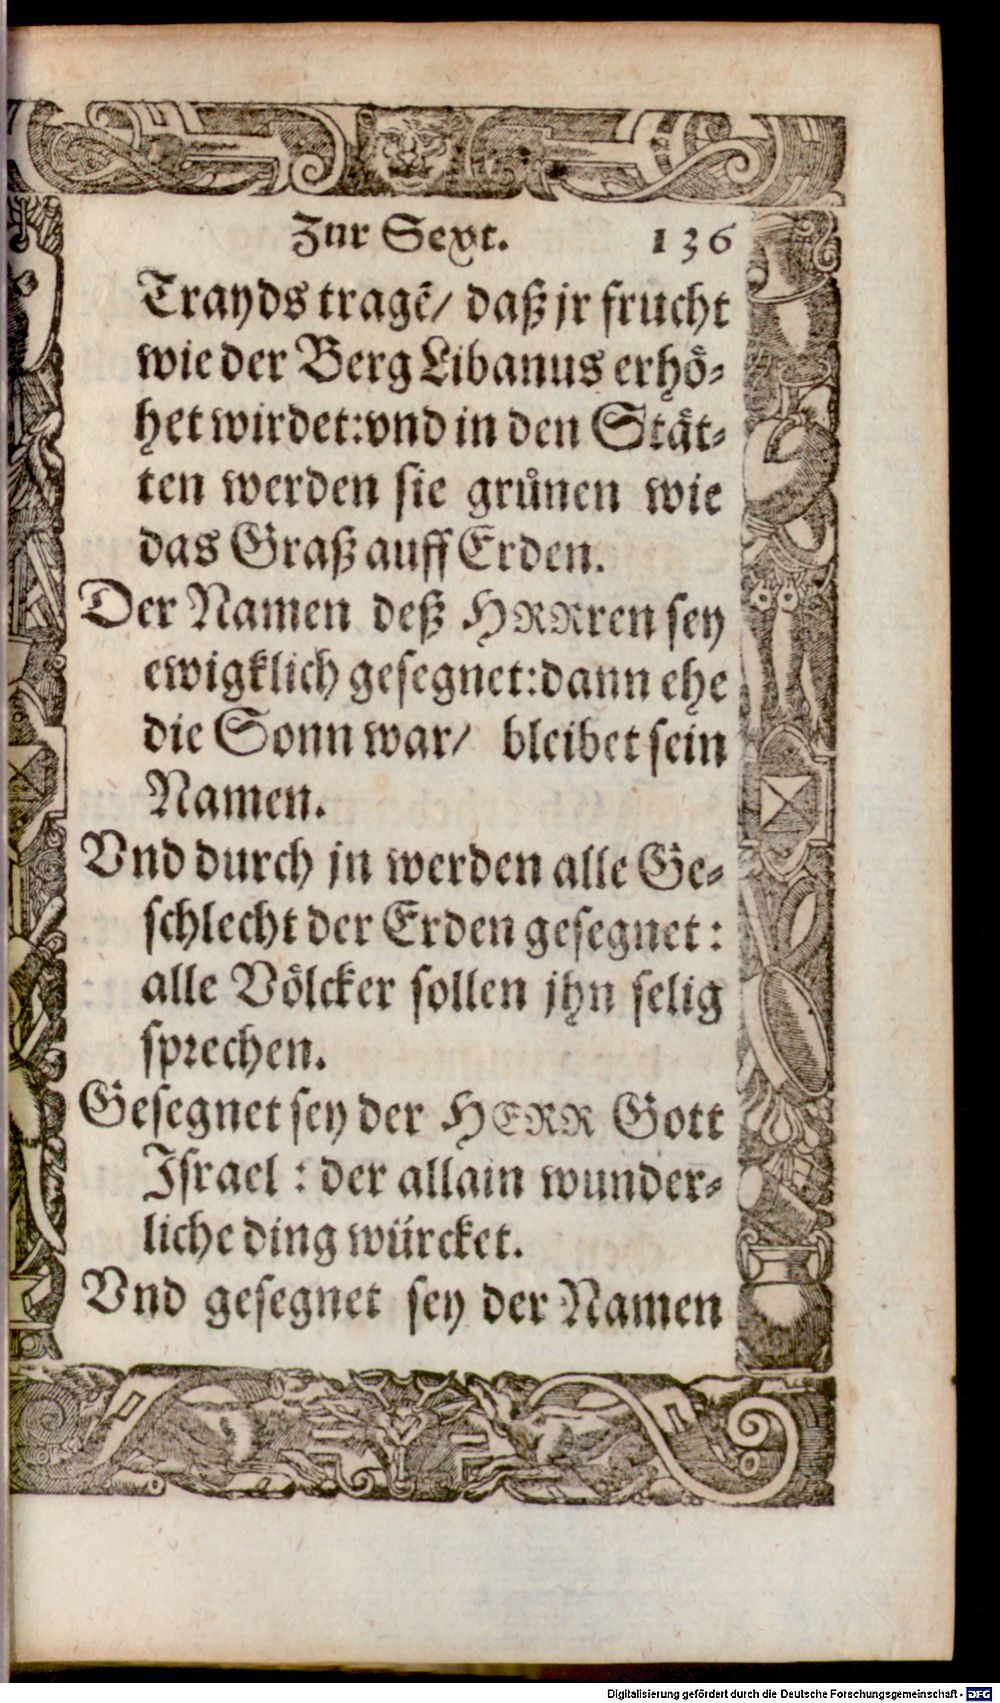 Zur Sext. 136
Trayds tragẽ/ daß jr frucht
wie der Berg Libanus erhoͤ⸗
het wirdet: vnd in den Staͤt⸗
ten werden sie gruͤnen wie
das Graß auff Erden.
Der Namen deß HRRren sey
ewigklich gesegnet: dann ehe
die Sonn war/ bleibet sein
Namen.
Vnd durch jn werden alle Ge⸗
schlecht der Erden gesegnet:
alle Voͤlcker sollen jhn selig
sprechen.
Gesegnet sey der HERR Gott
Israel: der allain wunder⸗
liche ding würcket.
Vnd gesegnet sey der Namen
Digitalisierung gefördert durch die Deutsche Forschungsgemeinschaft - DFG